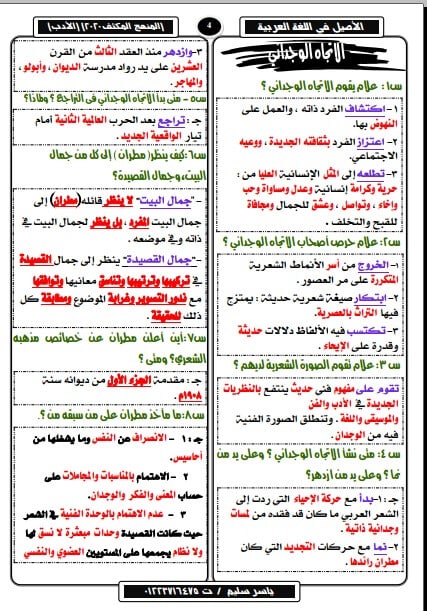 الأصيل في اللغة العربية
4
(المنهج المكثف ٢٠٢٠) [الأدب]
الاتجاه الوجداني
س١: علام يقوم الاتجاه الوجداني؟
١- اكتشاف الفرد ذاته ، والعمل على
النهوض بها.
٢- اعتزاز الفرد بثقافته الجديدة ، ووعيه
الاجتماعي.
٣- تطلعه إلى المثل الإنسانية العليا من :
حرية وكرامة إنسانية وعدل ومساواة وحب
وإخاء ، وتواصل ، وعشق للجمال ومجافاة
للقبح والتخلف .
س٢: علام حرص أصحاب الاتجاه الوجداني ؟
١- الخروج من أسر الأنماط الشعرية
المتكررة على مر العصور .
٢- ابتكار صيغة شعرية حديثة : يمتزج
فيها التراث بالعصرية.
٣- تكتسب فيه الألفاظ دلالات حديثة
وقدرة على الإيحاء .
س٣: علام تقوم الصورة الشعرية لديهم ؟
تقوم على مفهوم فنى حديث ينتفع بالنظريات
الجديدة في الأدب والفن
والموسيقى واللغة . وتنطلق الصورة الفنية
فيه من الوجدان .
س٤: متى نشأ الاتجاه الوجداني ؟ وعلى يد من
نما ؟ وعلى يد من ازدهر؟
جـ:١- بدأ مع حركة الإحياء التي ردت إلى
الشعر العربي ما كان قد فقده من لمسات
وجدانية ذاتية .
٢- نما مع حركات التجديد التي كان
مطران رائدها .
٣- وازدهر منذ العقد الثالث من القرن
العشرين على يد رواد مدرسة الديوان ، وأبولو ،
والمهاجر .
س٥- متى بدا الاتجاه الوجداني فى التراجع ؟ ولماذا؟
جـ : تراجع بعد الحرب العالمية الثانية أمام
تيار الواقعية الجديد .
س٦:كيف ينظر( مطران ) إلى كل من جمال
البيت، وجمال القصيدة؟
- "جمال البيت" لا ينظر قائله(مطران) إلى
جمال البيت المفرد ، بل ينظر لجمال البيت في
ذاته وفي موضعه .
- "جمال القصيدة" ينظر إلى جمال القصيدة
في تركيبها وترتيبها وتناسق معانيها وتوافقها
مع ندور التصوير وغرابة الموضوع ومطابقة كل
ذلك للحقيقة.
س٧:أين أعلن مطران عن خصائص مذهبه
الشعري؟ ومتى ؟
جـ : مقدمة الجزء الأول من ديوانه سنة
١٩٠٨م.
س٨:ما مآخذ مطران على من سبقه من ؟.
جـ : ١ - الانصراف عن النفس وما يشغلها من
أحاسيس.
٢ - الاهتمام بالمناسبات والمجاملات على
حساب المعنى والفكر والوجدان.
٣ - عدم الاهتمام بالوحدة الفنية في الشعر
حيث كانت القصيدة وحدات مبعثرة لا نسق لها
ولا نظام يجمعها على المستويين العضوي والنفسي
ياسر سليم / ت ٠١٢٢٣٧١٦٤٧٥